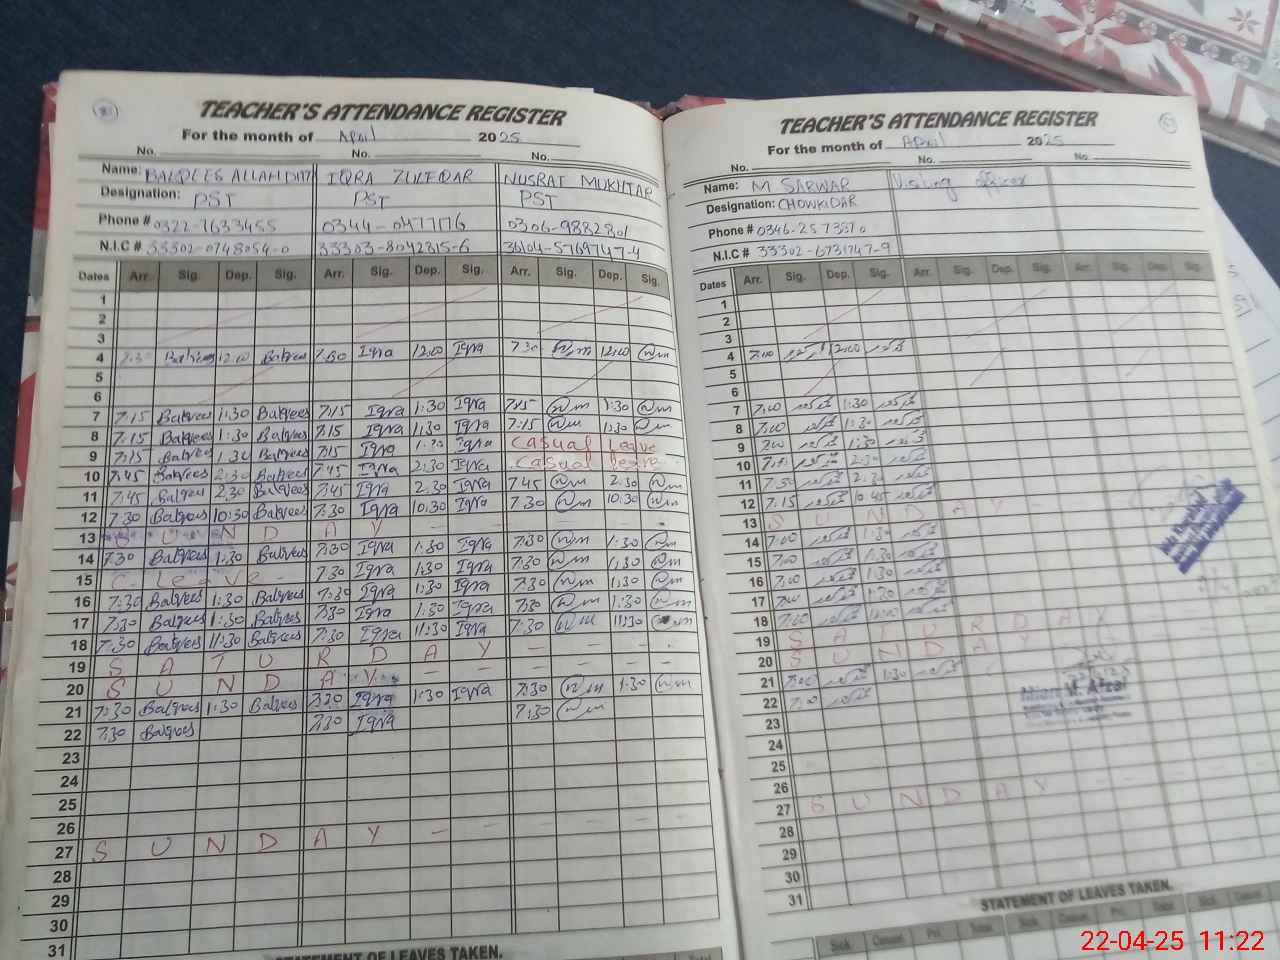 TEACHER'S ATTENDANCE REGISTER
For the month of April 2025
No. No. No.
Name: BALQEES ALLAH DITTA IQRA ZULFQAR NUSRAT MUKHTAR
Designation: PST PST PST
Phone # 0322-7633455 0344-0477176 0306-9882801
N.I.C # 33302-0748054-0 33303-8042815-6 36104-5769747-4
Dates Arr. Sig. Dep. Sig. Arr. Sig. Dep. Sig. Arr. Sig. Dep. Sig.
1
2
3
4 7:30 Balqees 12:00 Balqees 7:30 Iqra 12:00 Iqra 7:30 12:00
5
6
7 7:15 Balqees 1:30 Balqees 7:15 Iqra 1:30 Iqra 7:15 1:30
8 7:15 Balqees 1:30 Balqees 7:15 Iqra 1:30 Iqra 7:15 1:30
9 7:15 Balqees 1:30 Balqees 7:15 Iqra 1:30 Iqra Casual Leave
10 7:45 Balqees 2:30 Balqees 7:45 Iqra 2:30 Iqra Casual leave
11 7:45 Balqees 2:30 Balqees 7:45 Iqra 2:30 Iqra 7:45 2:30
12 7:30 Balqees 10:30 Balqees 7:30 Iqra 10:30 Iqra 7:30 10:30
13 S U N D A Y - - - -
14 7:30 Balqees 1:30 Balqees 7:30 Iqra 1:30 Iqra 7:30 1:30
15 C. Leave - 7:30 Iqra 1:30 Iqra 7:30 1:30
16 7:30 Balqees 1:30 Balqees 7:30 Iqra 1:30 Iqra 7:30 1:30
17 7:30 Balqees 1:30 Balqees 7:30 Iqra 1:30 Iqra 7:30 1:30
18 7:30 Balqees 11:30 Balqees 7:30 Iqra 11:30 Iqra 7:30 11:30
19 S A T U R D A Y - - -
20 S U N D A Y - - - - -
21 7:30 Balqees 1:30 Balqees 7:30 Iqra 1:30 Iqra 7:30 1:30
22 7:30 Balqees 7:30 Iqra 7:30
23
24
25
26
27 S U N D A Y - - - - -
28
29
30
31
STATEMENT OF LEAVES TAKEN.
Total
TEACHER'S ATTENDANCE REGISTER
For the month of April 2025
No. No. No.
Name: M SARWAR Visiting officer
Designation: CHOWKIDAR
Phone #
N.I.C # 33302-6731747-9
Dates Arr. Sig. Dep. Sig. Arr. Sig. Dep. Sig. Arr. Sig. Dep. Sig.
1
2
3
4 7:00 12:00
5
6
7 7:00 1:30
8 7:00 1:30
9 7:00 1:30
10 2:30
11 7:30 2:30
12 7:15 10:45
13 S U N D A Y -
14 7:00 1:30
15 7:00 1:30
16 7:00 1:30
17 7:00 1:30
18 7:00 12:00
19 S A U R D A Y
20 S U N D A Y
21 7:00 1:30
22 7:00
Mian M. Afzal
23
24
25
26
27 S U N D A Y - -
28
29
30
31
STATEMENT OF LEAVES TAKEN.
Sick. Casual. Pri. Total. Sick. Casual. Pri. Total. Sick. Casual.
22-04-25 11:22